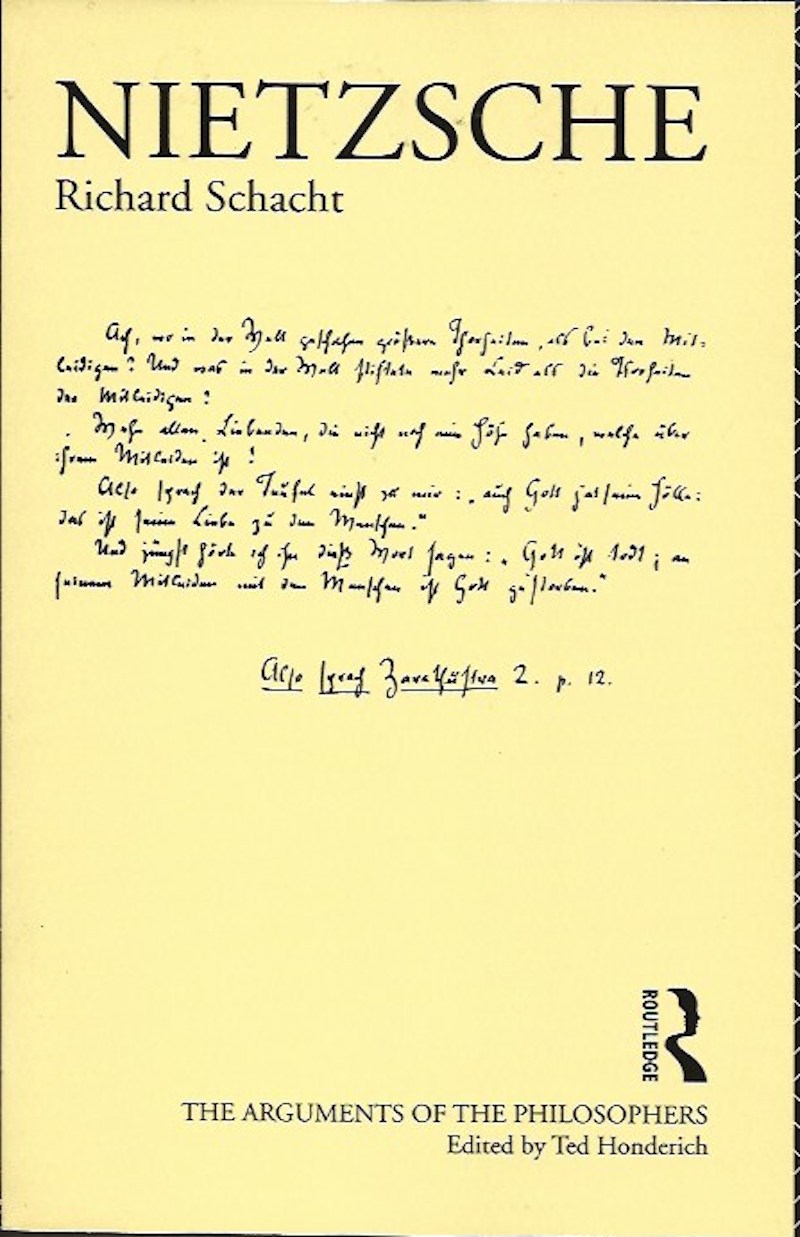 NIETZSCHE
Richard Schacht
Ach, wo in der Welt geschahen größere Thorheiten, als bei den Mit-
leidigen? Und was in der Welt stiftete mehr Leid als die Thorheiten
der Mitleidigen?
Wehe allen Liebenden, die nicht noch eine Höhe haben, welche über
ihrem Mitleiden ist!
Also sprach der Teufel einst zu mir: „auch Gott hat seine Hölle:
das ist seine Liebe zu den Menschen."
Und jüngst hörte ich ihn dieß Wort sagen: „Gott ist todt; an
seinem Mitleiden mit den Menschen ist Gott gestorben."
Also sprach Zarathustra 2. p. 12.
ROUTLEDGE
THE ARGUMENTS OF THE PHILOSOPHERS
Edited by Ted Honderich